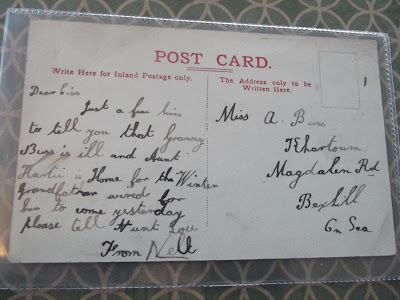 POST CARD.
Write Here for Inland Postage only.
The Address only to be
Written Here.
Dear Ciss
Just a few lines
to tell you that Granny
Buss is ill and Aunt
is Home for the Winter
Grandfather wired for
her to come yesterday
please tell Aunt Lou
From Nell
Miss A. Buss
Khartoum
Magdalen Rd
Bexhill
On Sea